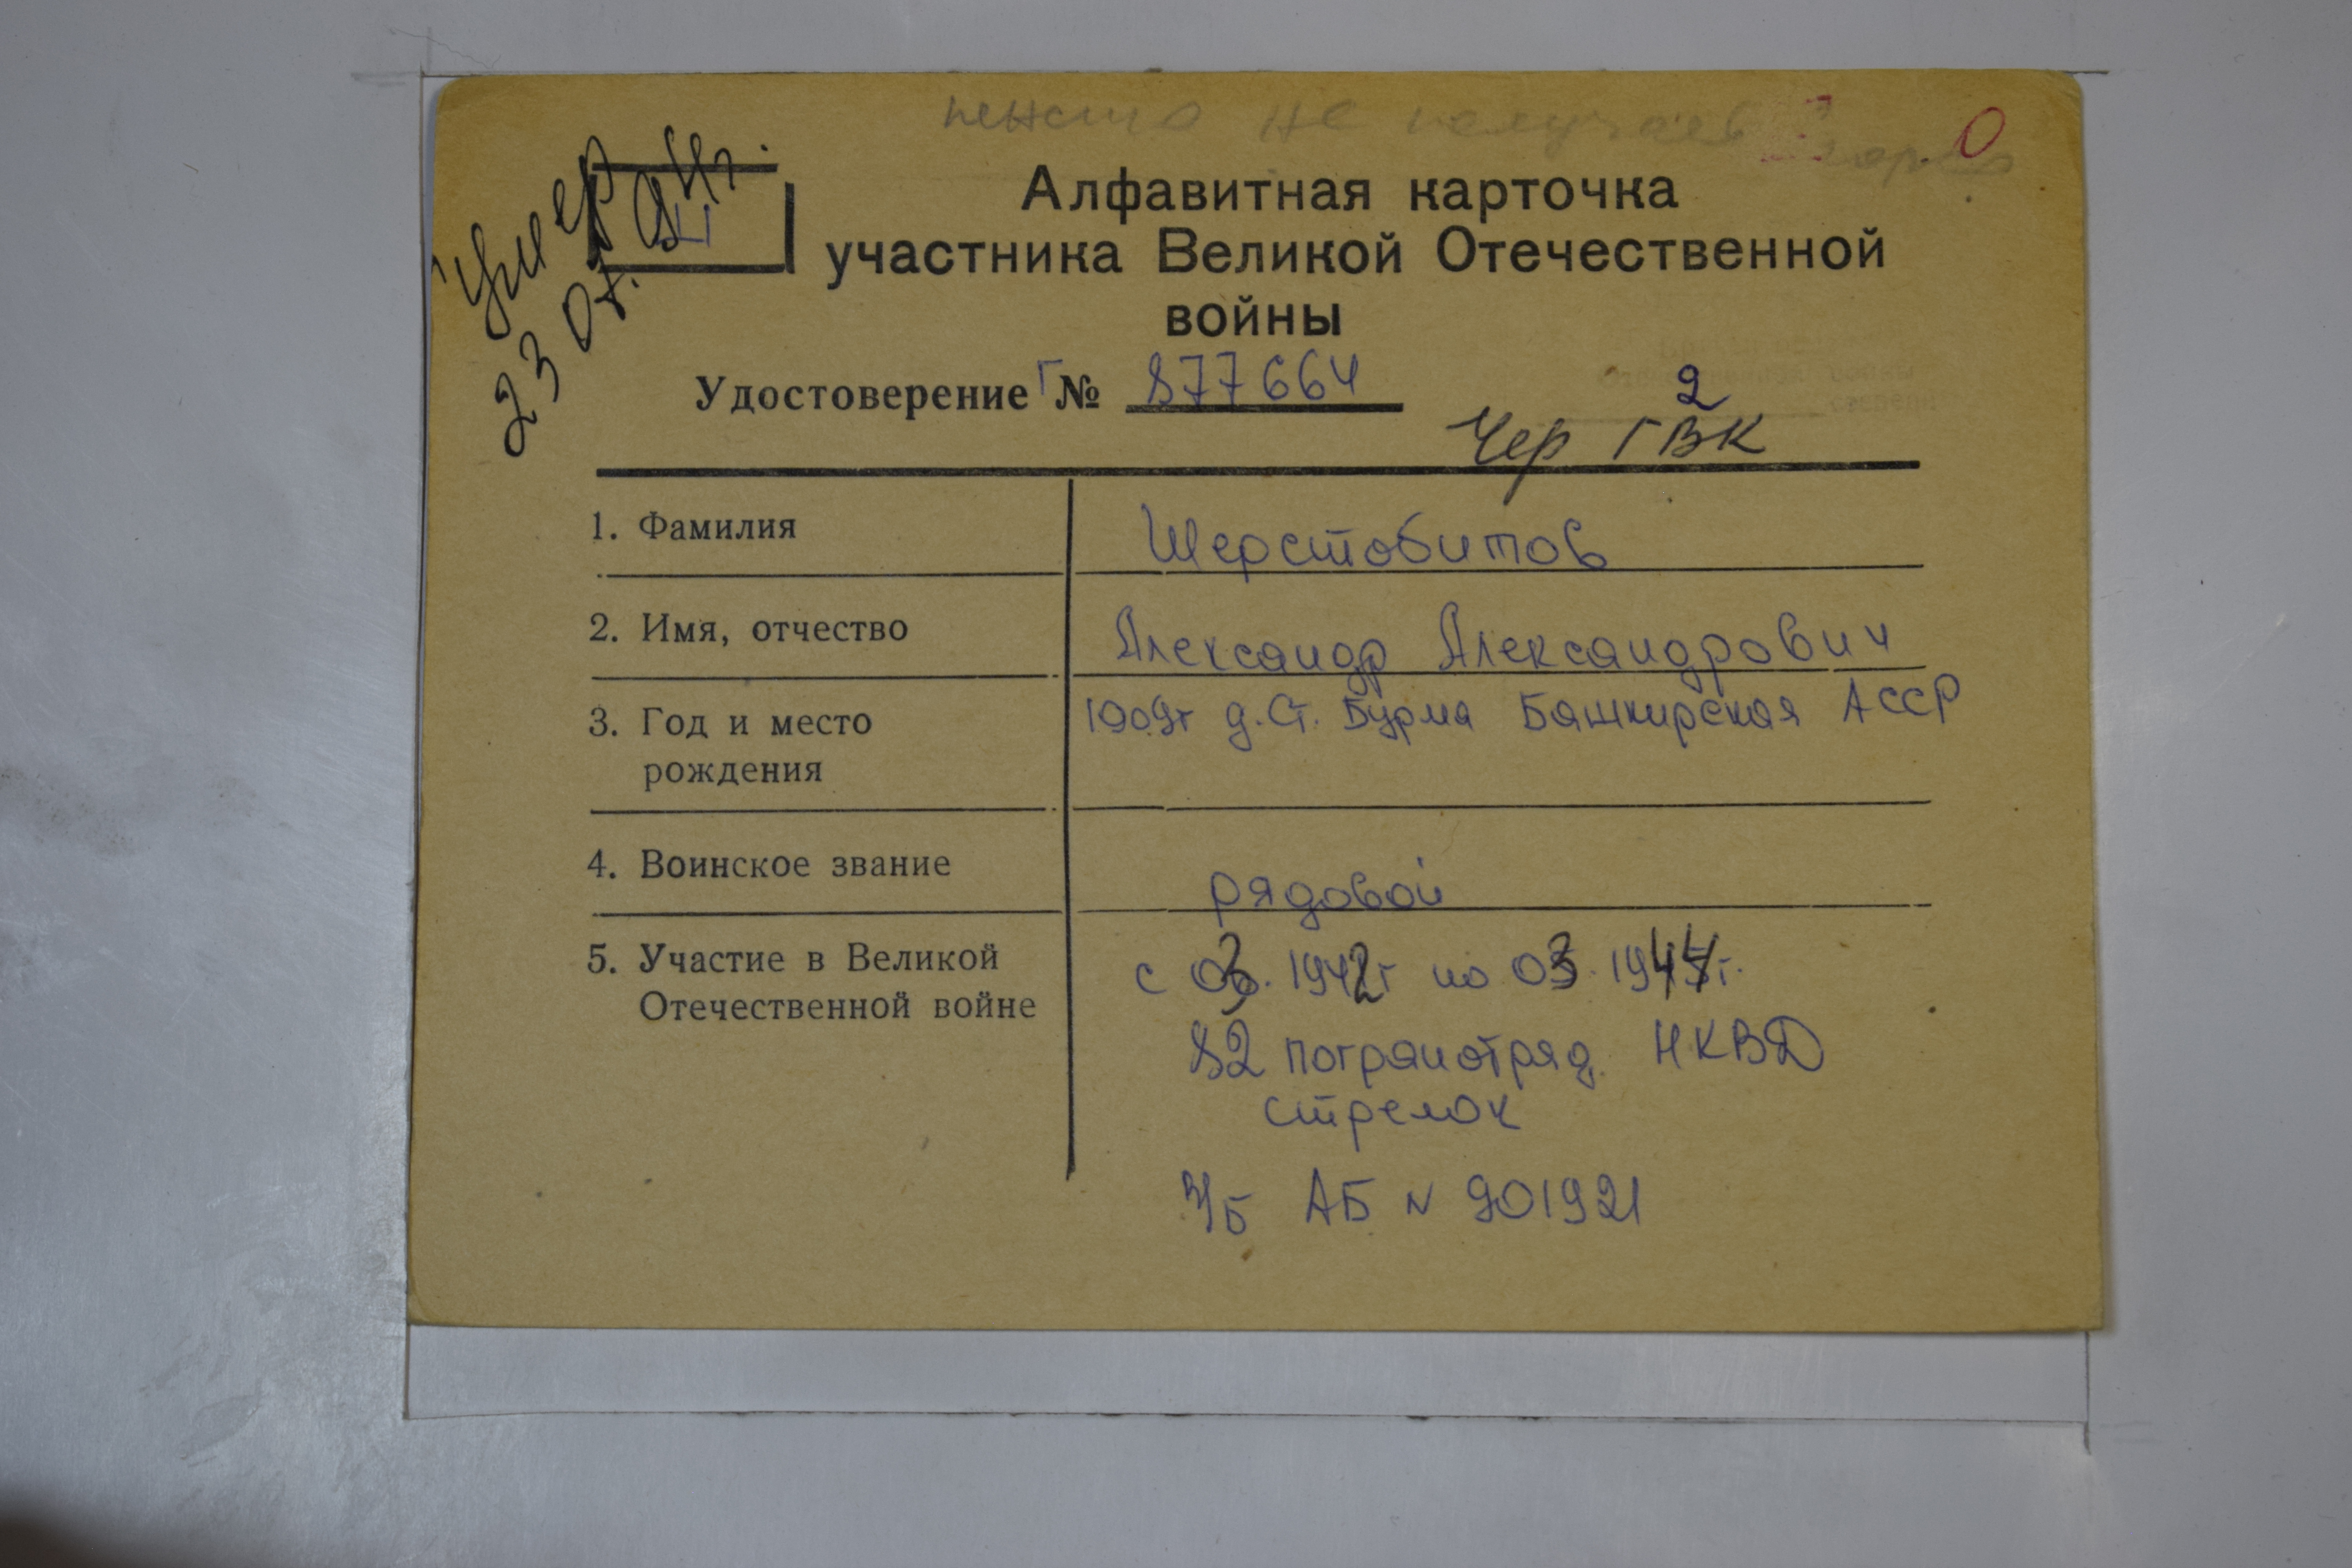 не
0
умер
23 07. 94г.
Ш
Алфавитная карточка
участника Великой Отечественной
войны
Удостоверение Г № 877664
2
Чер ГВК
1. Фамилия Шерстобитов
2. Имя, отчество Александр Александрович
3. Год и место 1909г д. Ст. Бурма Башкирская АССР
рождения
4. Воинское звание рядовой
5. Участие в Великой с 03. 1942г по 03. 1944г.
Отечественной войне
82 погранотряд НКВД
стрелок
АБ N 901921